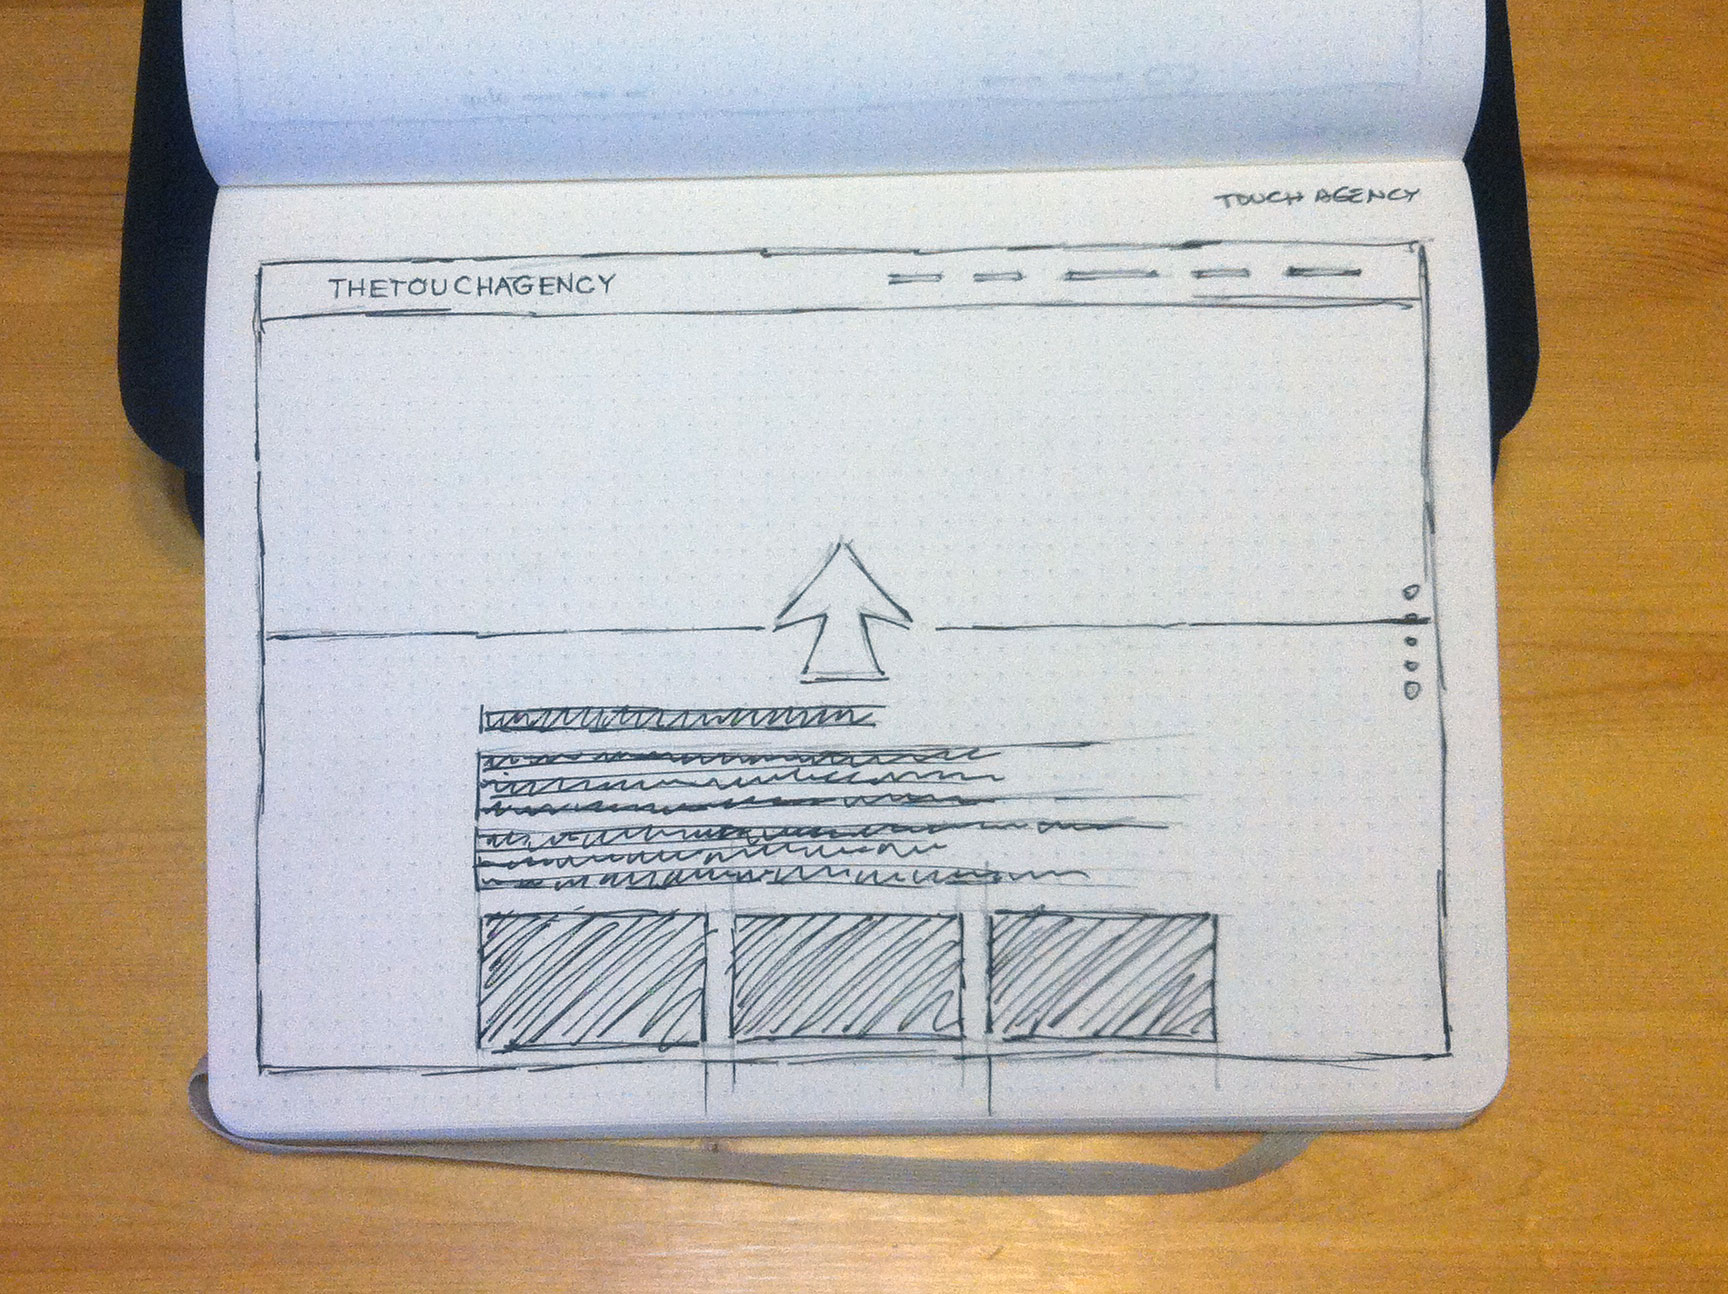 TOUCH AGENCY
THETOUCHAGENCY